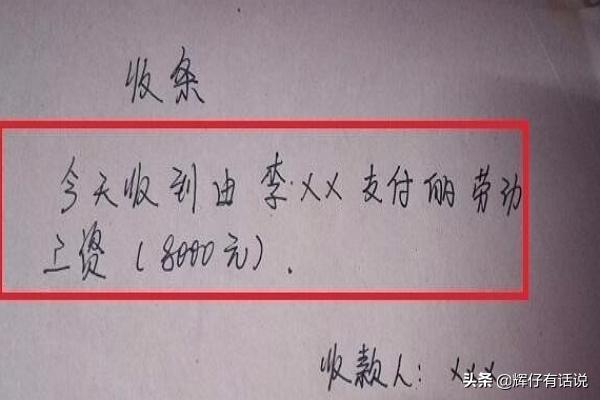 收条
今天收到由李XX支付的劳动
工资(8000元).
收款人: XXX
头条 @辉仔有话说